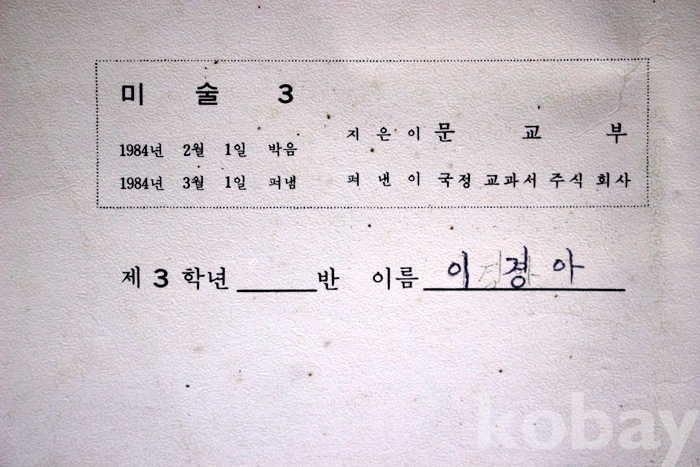 미 술 3
1984년 2월 1일 박음 지은이 문 교 부
1984년 3월 1일 펴냄 펴낸이 국정 교과서 주식 회사
제 3 학년 반 이름 이 경 아
kobay